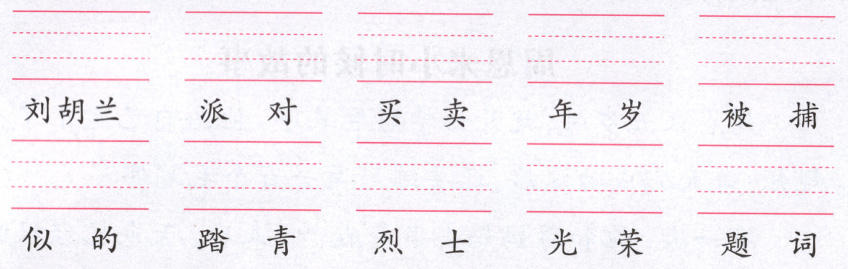 刘胡兰 派对 买卖 年岁 被捕
似的 踏青 烈士 光荣 题词